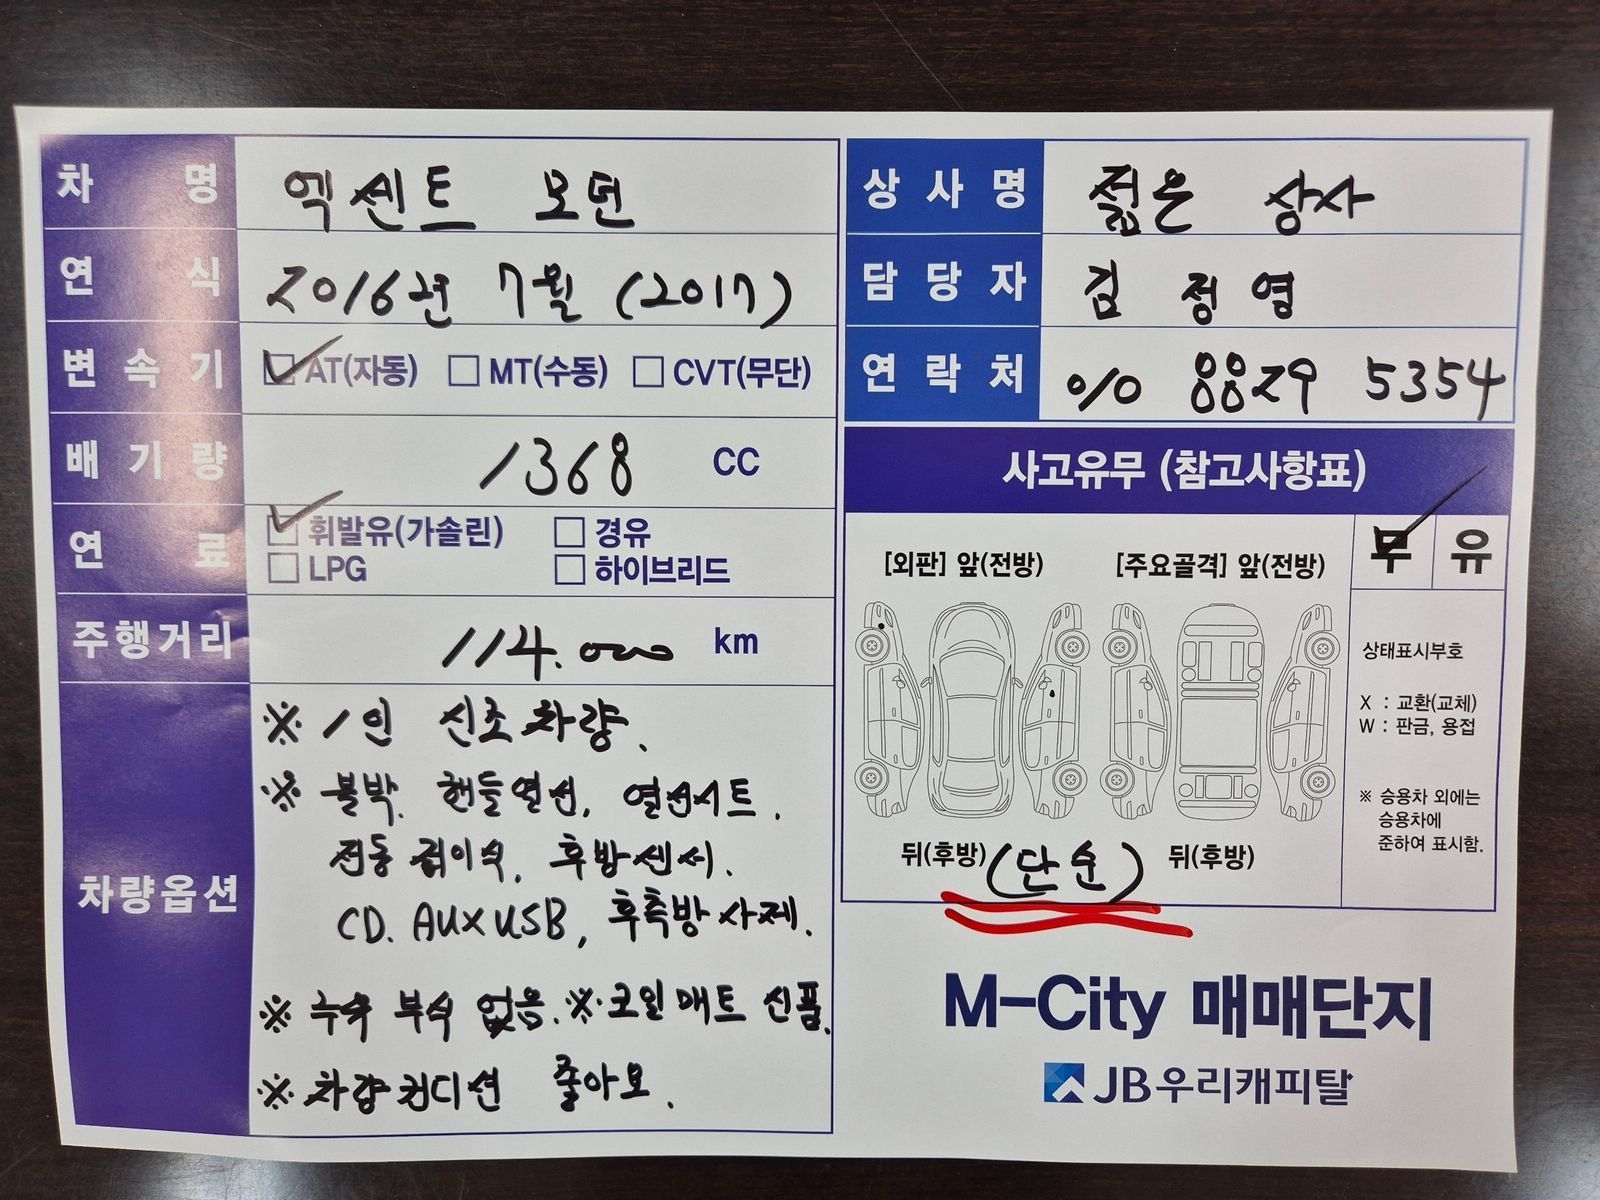 차 명 엑센트 모던
연 식 2016년 7월 (2017)
변 속 기 AT(자동) MT(수동) CVT(무단)
배 기 량 1368 CC
연 료 휘발유(가솔린) 경유
LPG 하이브리드
주행거리 114.000 km
차량옵션
※ 1인 신조차량.
※ 블박. 핸들열선, 열선시트.
전동접이식, 후방센서.
CD. AUX USB, 후측방 사제.
※ 누유 부식 없음. ※ 코일매트 신품.
※ 차량컨디션 좋아요.
상 사 명 젊은 상사
담 당 자 김 정 염
연 락 처 010 8829 5354
사고유무 (참고사항표)
[외판] 앞(전방) [주요골격] 앞(전방) 무 유
상태표시부호
X : 교환(교체)
W : 판금, 용접
※ 승용차 외에는
승용차에
준하여 표시함.
뒤(후방) (단순) 뒤(후방)
M-City 매매단지
JB우리캐피탈